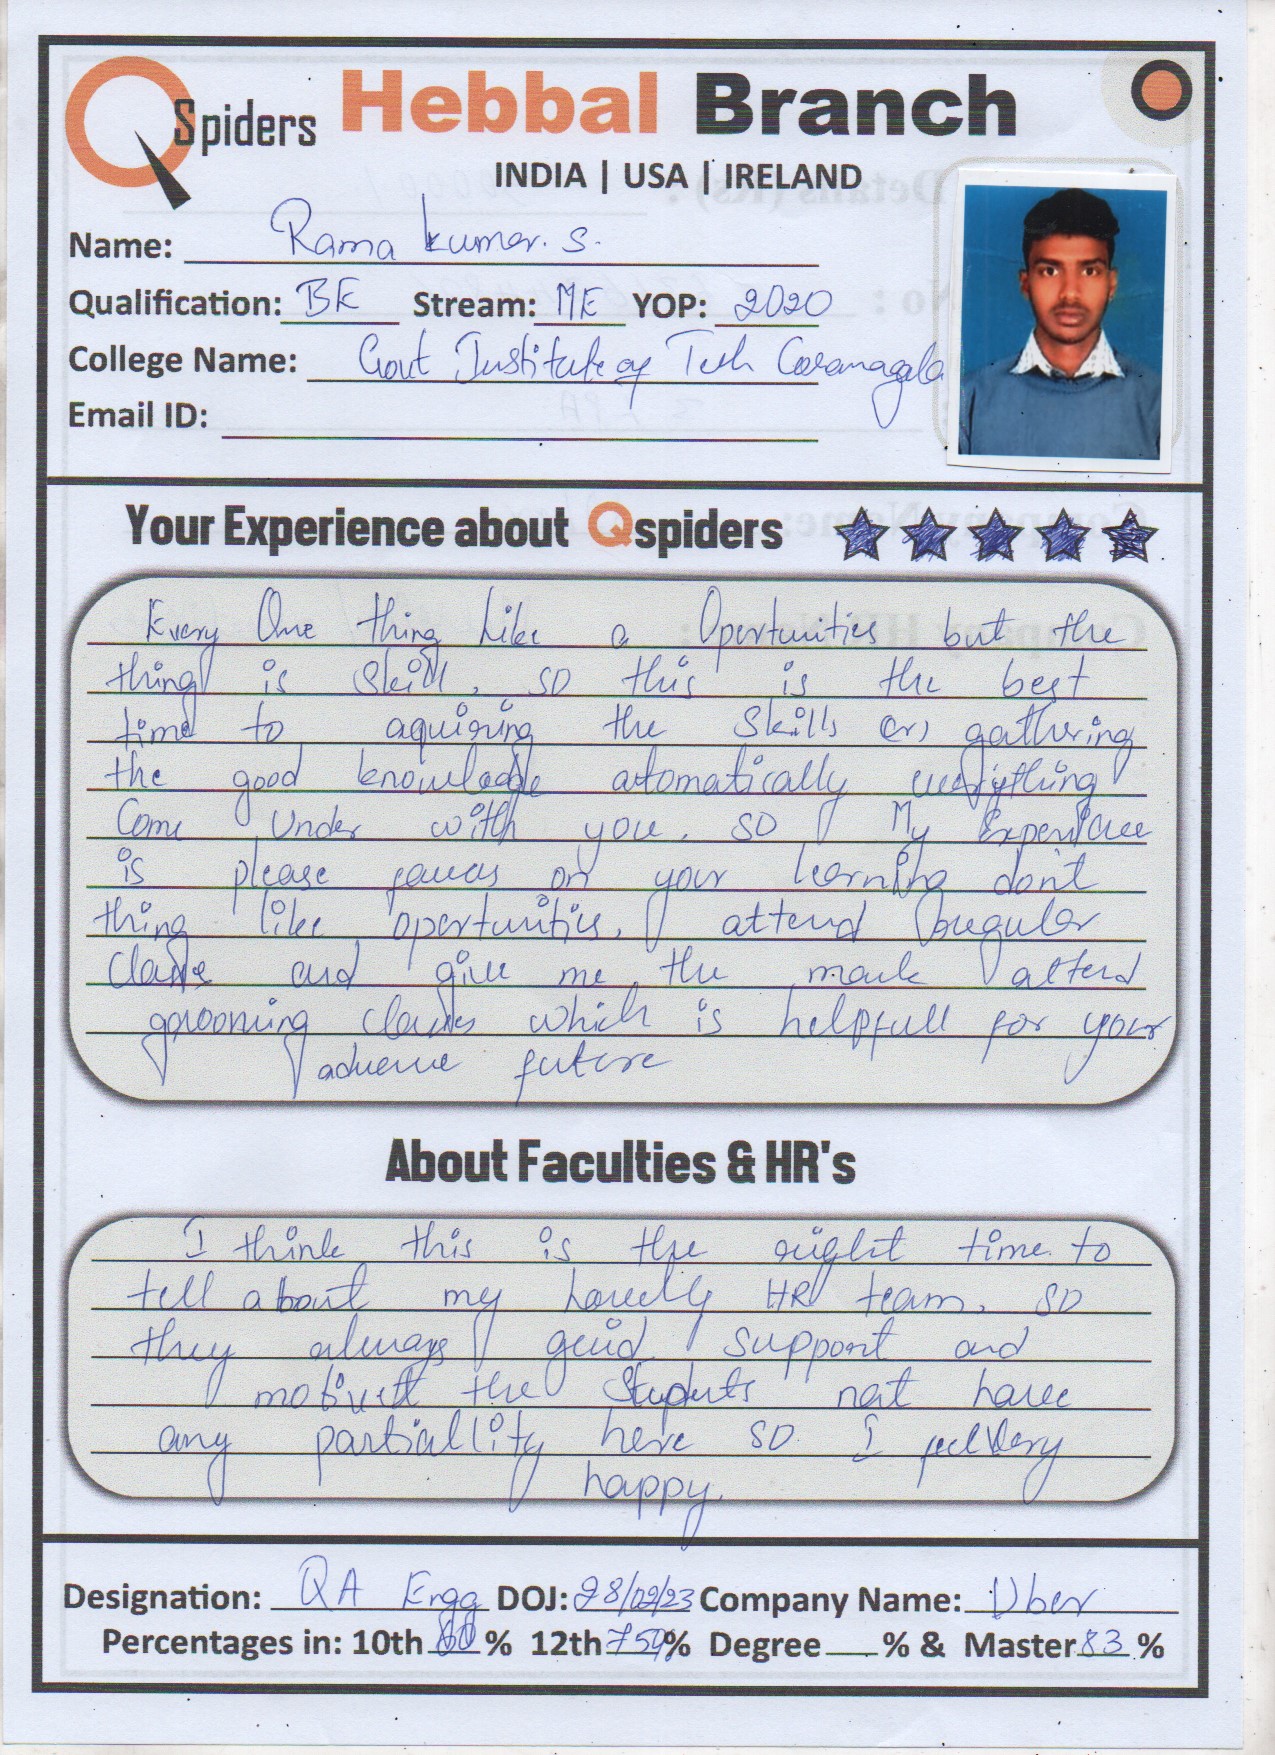 Qspiders Hebbal Branch
INDIA | USA | IRELAND
Name: Rama kumar. S.
Qualification: BE Stream: ME YOP: 2020
College Name: Govt Institute of Tech
Email ID:
Your Experience about Qspiders
Every One thing Like a Oportunities but the
thing is Skill, so this is the best
time to aquiring the Skills (or) gathering
the good knowladge atomatically everything
Come Under with you. so My Experience
is please on your learning don't
thing like oportunities, attend regular
and give me the mock attend
grooming which is helpfull for your
future
About Faculties & HR's
I think this is the right time to
tell about my HR team. so
they always guid support and
the Students not have
any partiallity here so I feel very
happy.
Designation: QA Engg DOJ: 28/02/23 Company Name: Uber
Percentages in: 10th % 12th % Degree % & Master 83 %